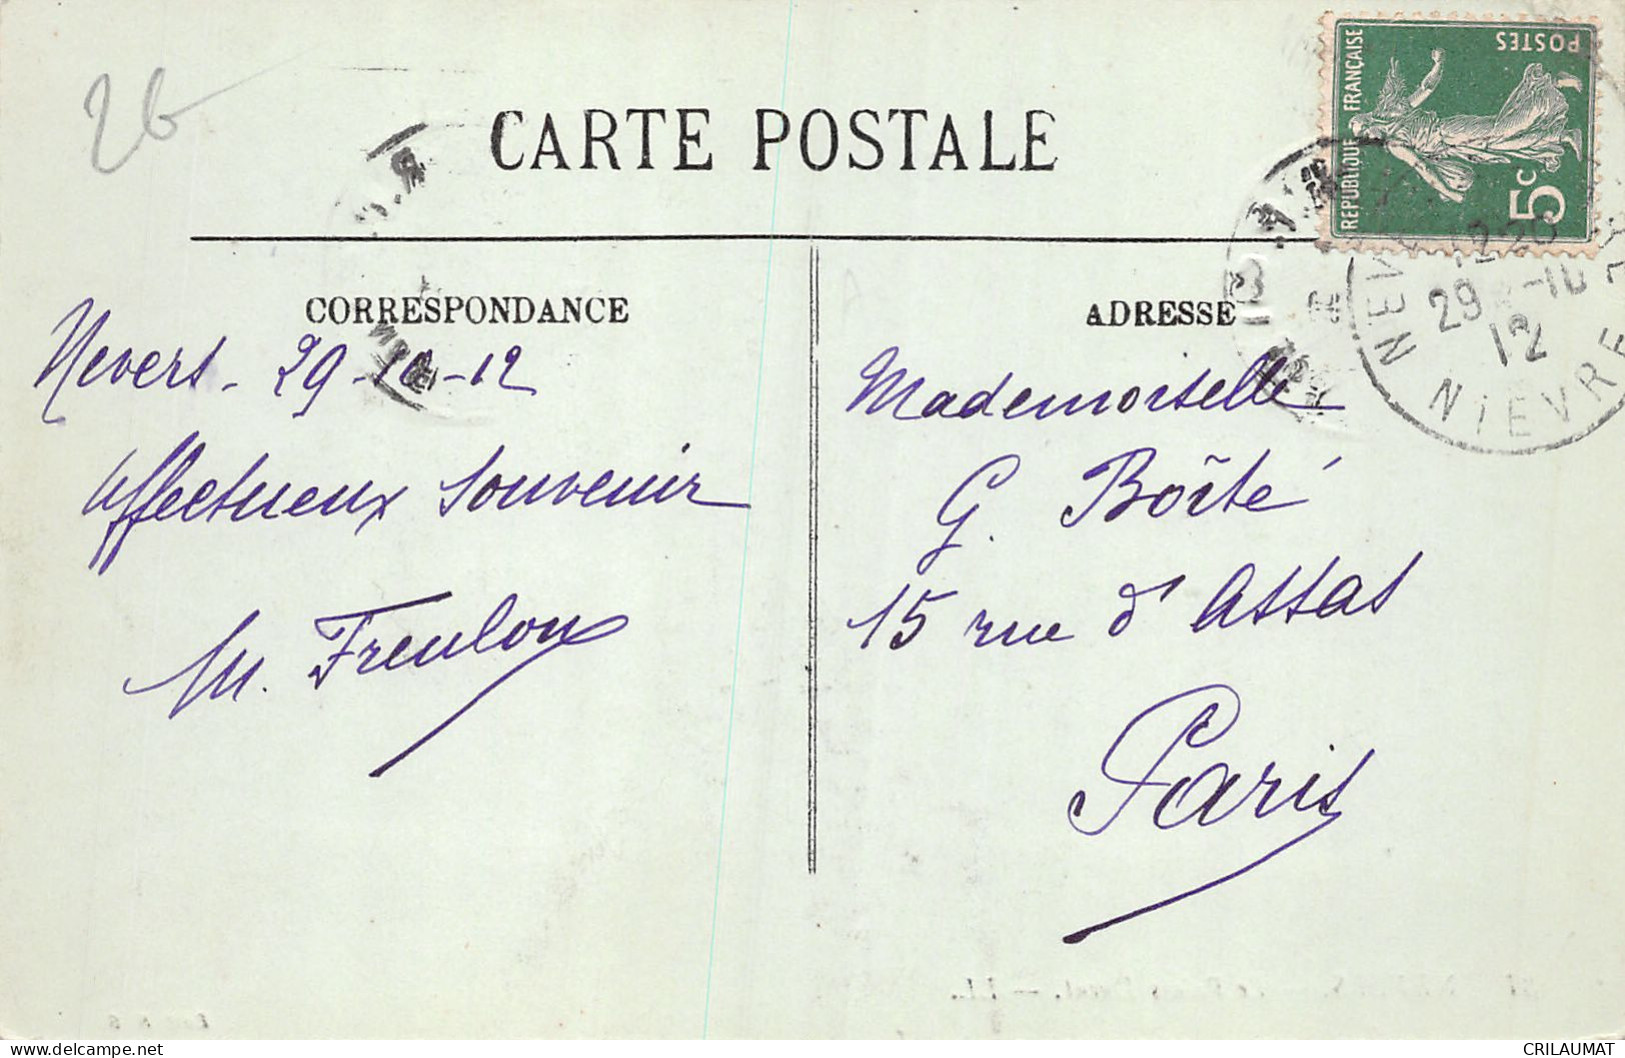 26
CARTE POSTALE
POSTES
REPUBLIQUE FRANÇAISE
5c
12 20
29 - 10
12
NIEVRE
CORRESPONDANCE
Nevers - 29 - 10 - 12
Affectueux souvenir
M. Freulon
ADRESSE
Mademoiselle
G. Boîté
15 rue d'Assas
Paris
CRILAUMAT